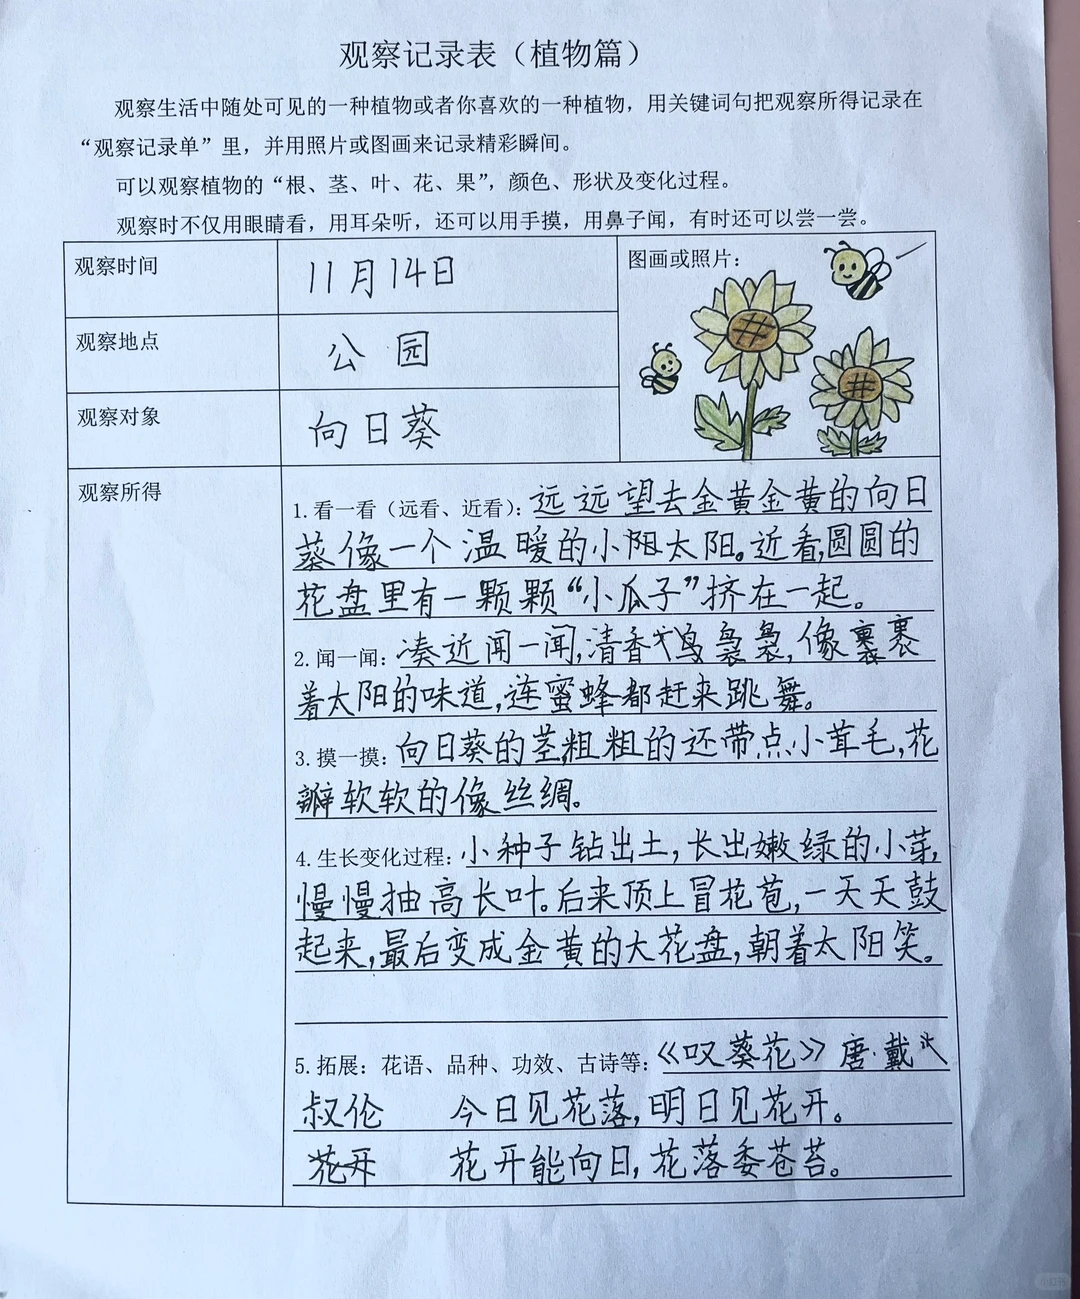 观察记录表（植物篇）
观察生活中随处可见的一种植物或者你喜欢的一种植物，用关键词句把观察所得记录在
“观察记录单”里，并用照片或图画来记录精彩瞬间。
可以观察植物的“根、茎、叶、花、果”，颜色、形状及变化过程。
观察时不仅用眼睛看，用耳朵听，还可以用手摸，用鼻子闻，有时还可以尝一尝。
观察时间 11月14日
图画或照片：
观察地点 公园
观察对象 向日葵
观察所得
1.看一看（远看、近看）：远远望去金黄金黄的向日
葵像一个温暖的小阳太阳。近看,圆圆的
花盘里有一颗颗“小瓜子”挤在一起。
2.闻一闻：凑近闻一闻,清香 袅袅,像裹裹
着太阳的味道,连蜜蜂都赶来跳舞。
3.摸一摸：向日葵的茎粗粗的还带点小茸毛,花
瓣软软的像丝绸。
4.生长变化过程：小种子钻出土,长出嫩绿的小芽,
慢慢抽高长叶。后来顶上冒花苞,一天天鼓
起来,最后变成金黄的大花盘,朝着太阳笑。
5.拓展：花语、品种、功效、古诗等：《叹葵花》唐·戴
叔伦 今日见花落,明日见花开。
花开 花开能向日,花落委苍苔。
小红书